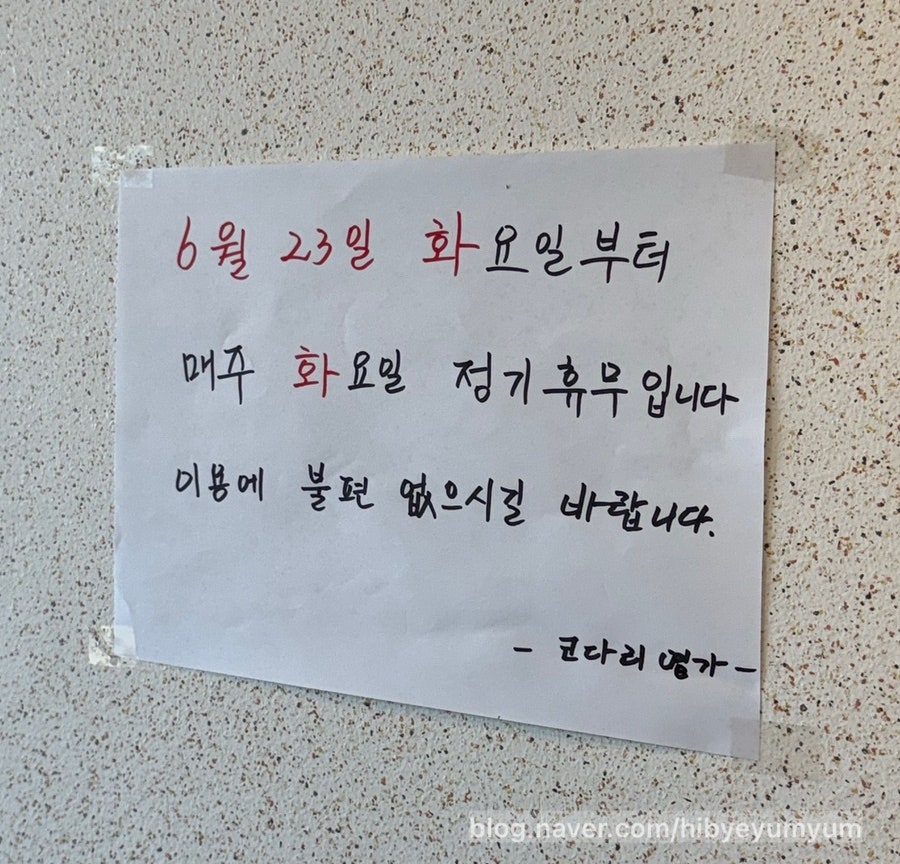 6월 23일 화요일부터
매주 화요일 정기휴무입니다
이용에 불편 없으시길 바랍니다.
- 코다리 명가 -
blog.naver.com/hibyeyumyum